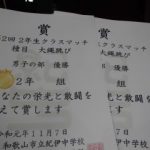 賞
2回 2年生クラスマッチ
種目 大縄跳び
男子の部 優勝
2年 組
なたの栄光と敢闘を
えて賞します
令和元年11月7日
和歌山市立紀伊中学校
賞
クラスマッチ
大縄跳び
優勝
組
敢闘を
す
月7日
中学校